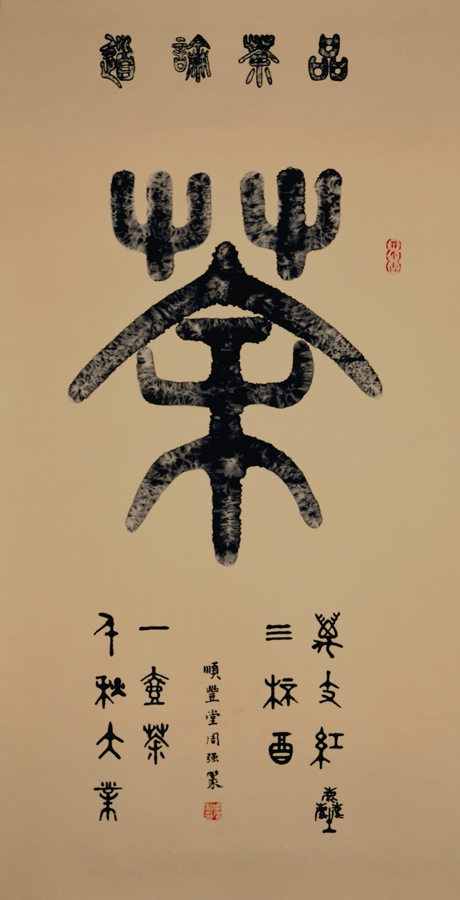 品茶論道
茶
萬丈紅塵
三杯酉
千秋大業
一壺茶
順豐堂周強篆